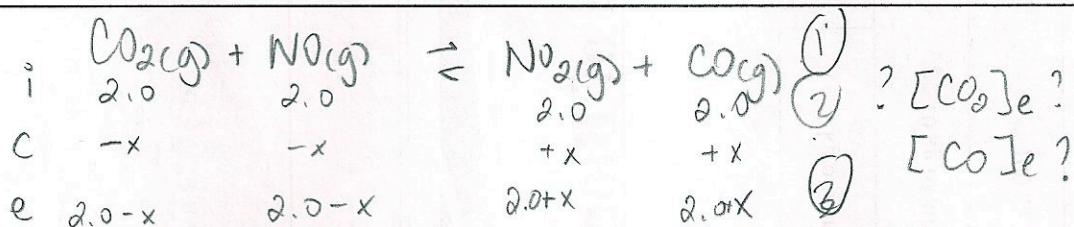 CO₂(g) + NO(g) ⇌ NO₂(g) + CO(g) ①
i 2.0 2.0 2.0 2.0 ② ? [CO₂]e ?
C -x -x +x +x [CO]e ?
e 2.0-x 2.0-x 2.0+x 2.0+x ③